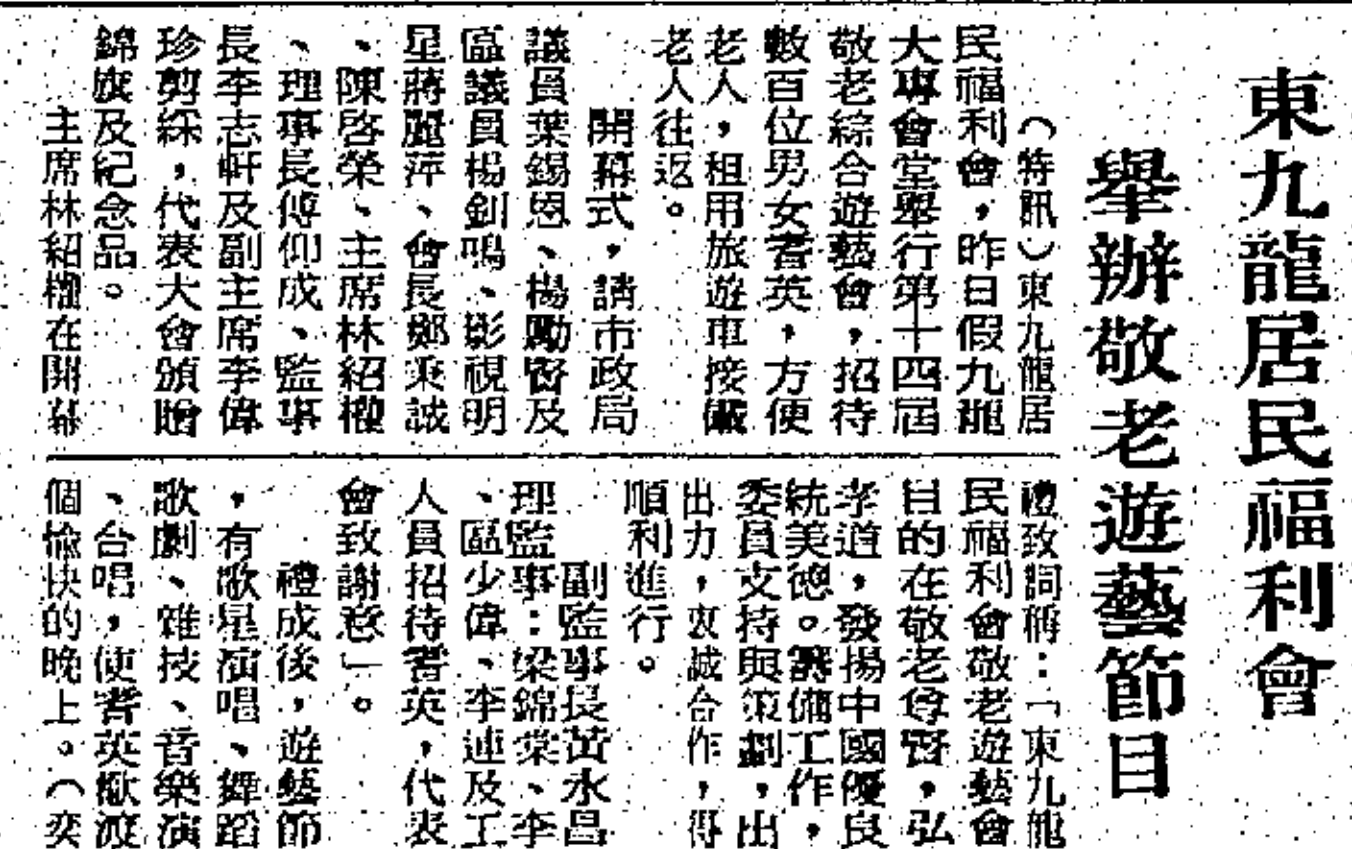 東九龍居民福利會
舉辦敬老遊藝節目
（特訊）東九龍居
民福利會，昨日假九龍
大專會堂舉行第十四屆
敬老綜合遊藝會，招待
數百位男女耆英，方便
老人，租用旅遊車接儎
老人往返。
開幕式，請市政局
議員葉錫恩、楊勵賢及
區議員楊釗鳴、影視明
星蔣麗萍、會長鄭秉誠
、陳啓榮、主席林紹權
、理事長傅仰成、監事
長李志軒及副主席李偉
珍剪綵，代表大會頒贈
錦旗及紀念品。
主席林紹權在開幕
禮致詞稱：「東九龍
民福利會敬老遊藝會
目的在敬老尊賢，弘
孝道，發揚中國優良
統美德。籌備工作，
委員支持與策劃，出
出力，衷誠合作，得
順利進行。
副監事長黃永昌
理監事：梁錦棠、李
、區少偉、李連及工
人員招待耆英，代表
會致謝意」。
禮成後，遊藝節
，有歌星演唱、舞蹈
歌劇、雜技、音樂演
、合唱，使耆英歡渡
個愉快的晚上。（奕